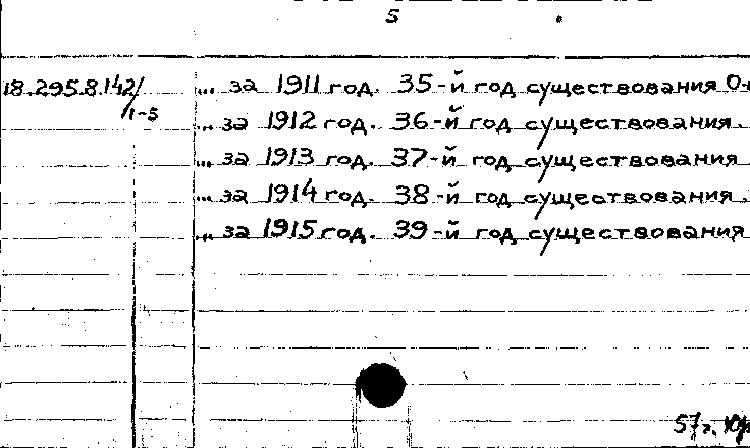 5
18.295.8.142/1-5 ... за 1911 год. 35-й год существования О-
... за 1912 год. 36-й год существования.
... за 1913 год. 37-й год существования
... за 1914 год. 38-й год существования.
... за 1915 год. 39-й год существования
57г.